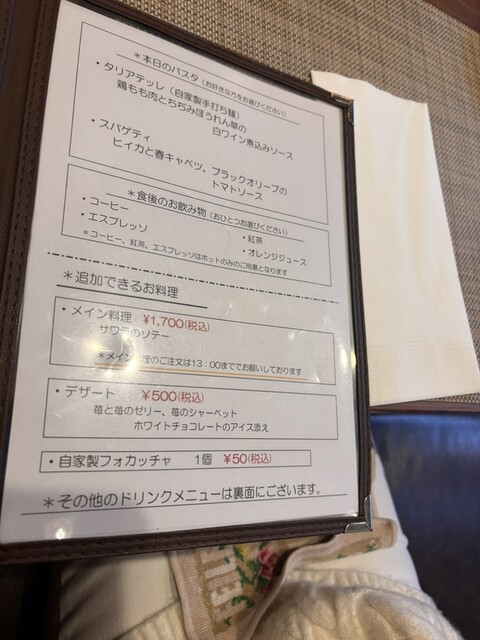 ＊本日のパスタ（お好きな方をお選びください）
・タリアテッレ（自家製手打ち麺）
鶏もも肉とちぢみほうれん草の
白ワイン煮込みソース
・スパゲティ
ヒイカと春キャベツ、ブラックオリーブの
トマトソース
＊食後のお飲み物（おひとつお選びください）
・コーヒー ・紅茶
・エスプレッソ ・オレンジジュース
＊コーヒー、紅茶、エスプレッソはホットのみのご用意となります
＊追加できるお料理
・メイン料理 ¥1,700(税込)
サワラのソテー
＊メイン 理のご注文は13：00まででお願いしております
・デザート ¥500(税込)
苺と苺のゼリー、苺のシャーベット
ホワイトチョコレートのアイス添え
・自家製フォカッチャ 1個 ¥50(税込)
＊その他のドリンクメニューは裏面にございます。